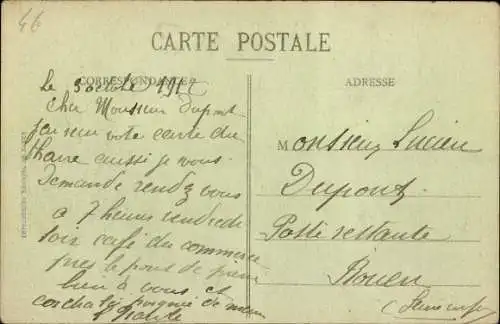 4€
CARTE POSTALE
CORRESPONDANCE
ADRESSE
Le 5 octobre
cher Monsieur Dupont
j'ai reçu vote carte du
Havre aussi je vous
Demande rendez vous
à 7 heures vendredi
soir café du commerce
pres le pont de pierre
bien à vous et
cordiale poignée de main
Monsieur Lucien
Dupont
Poste restante
Rouen